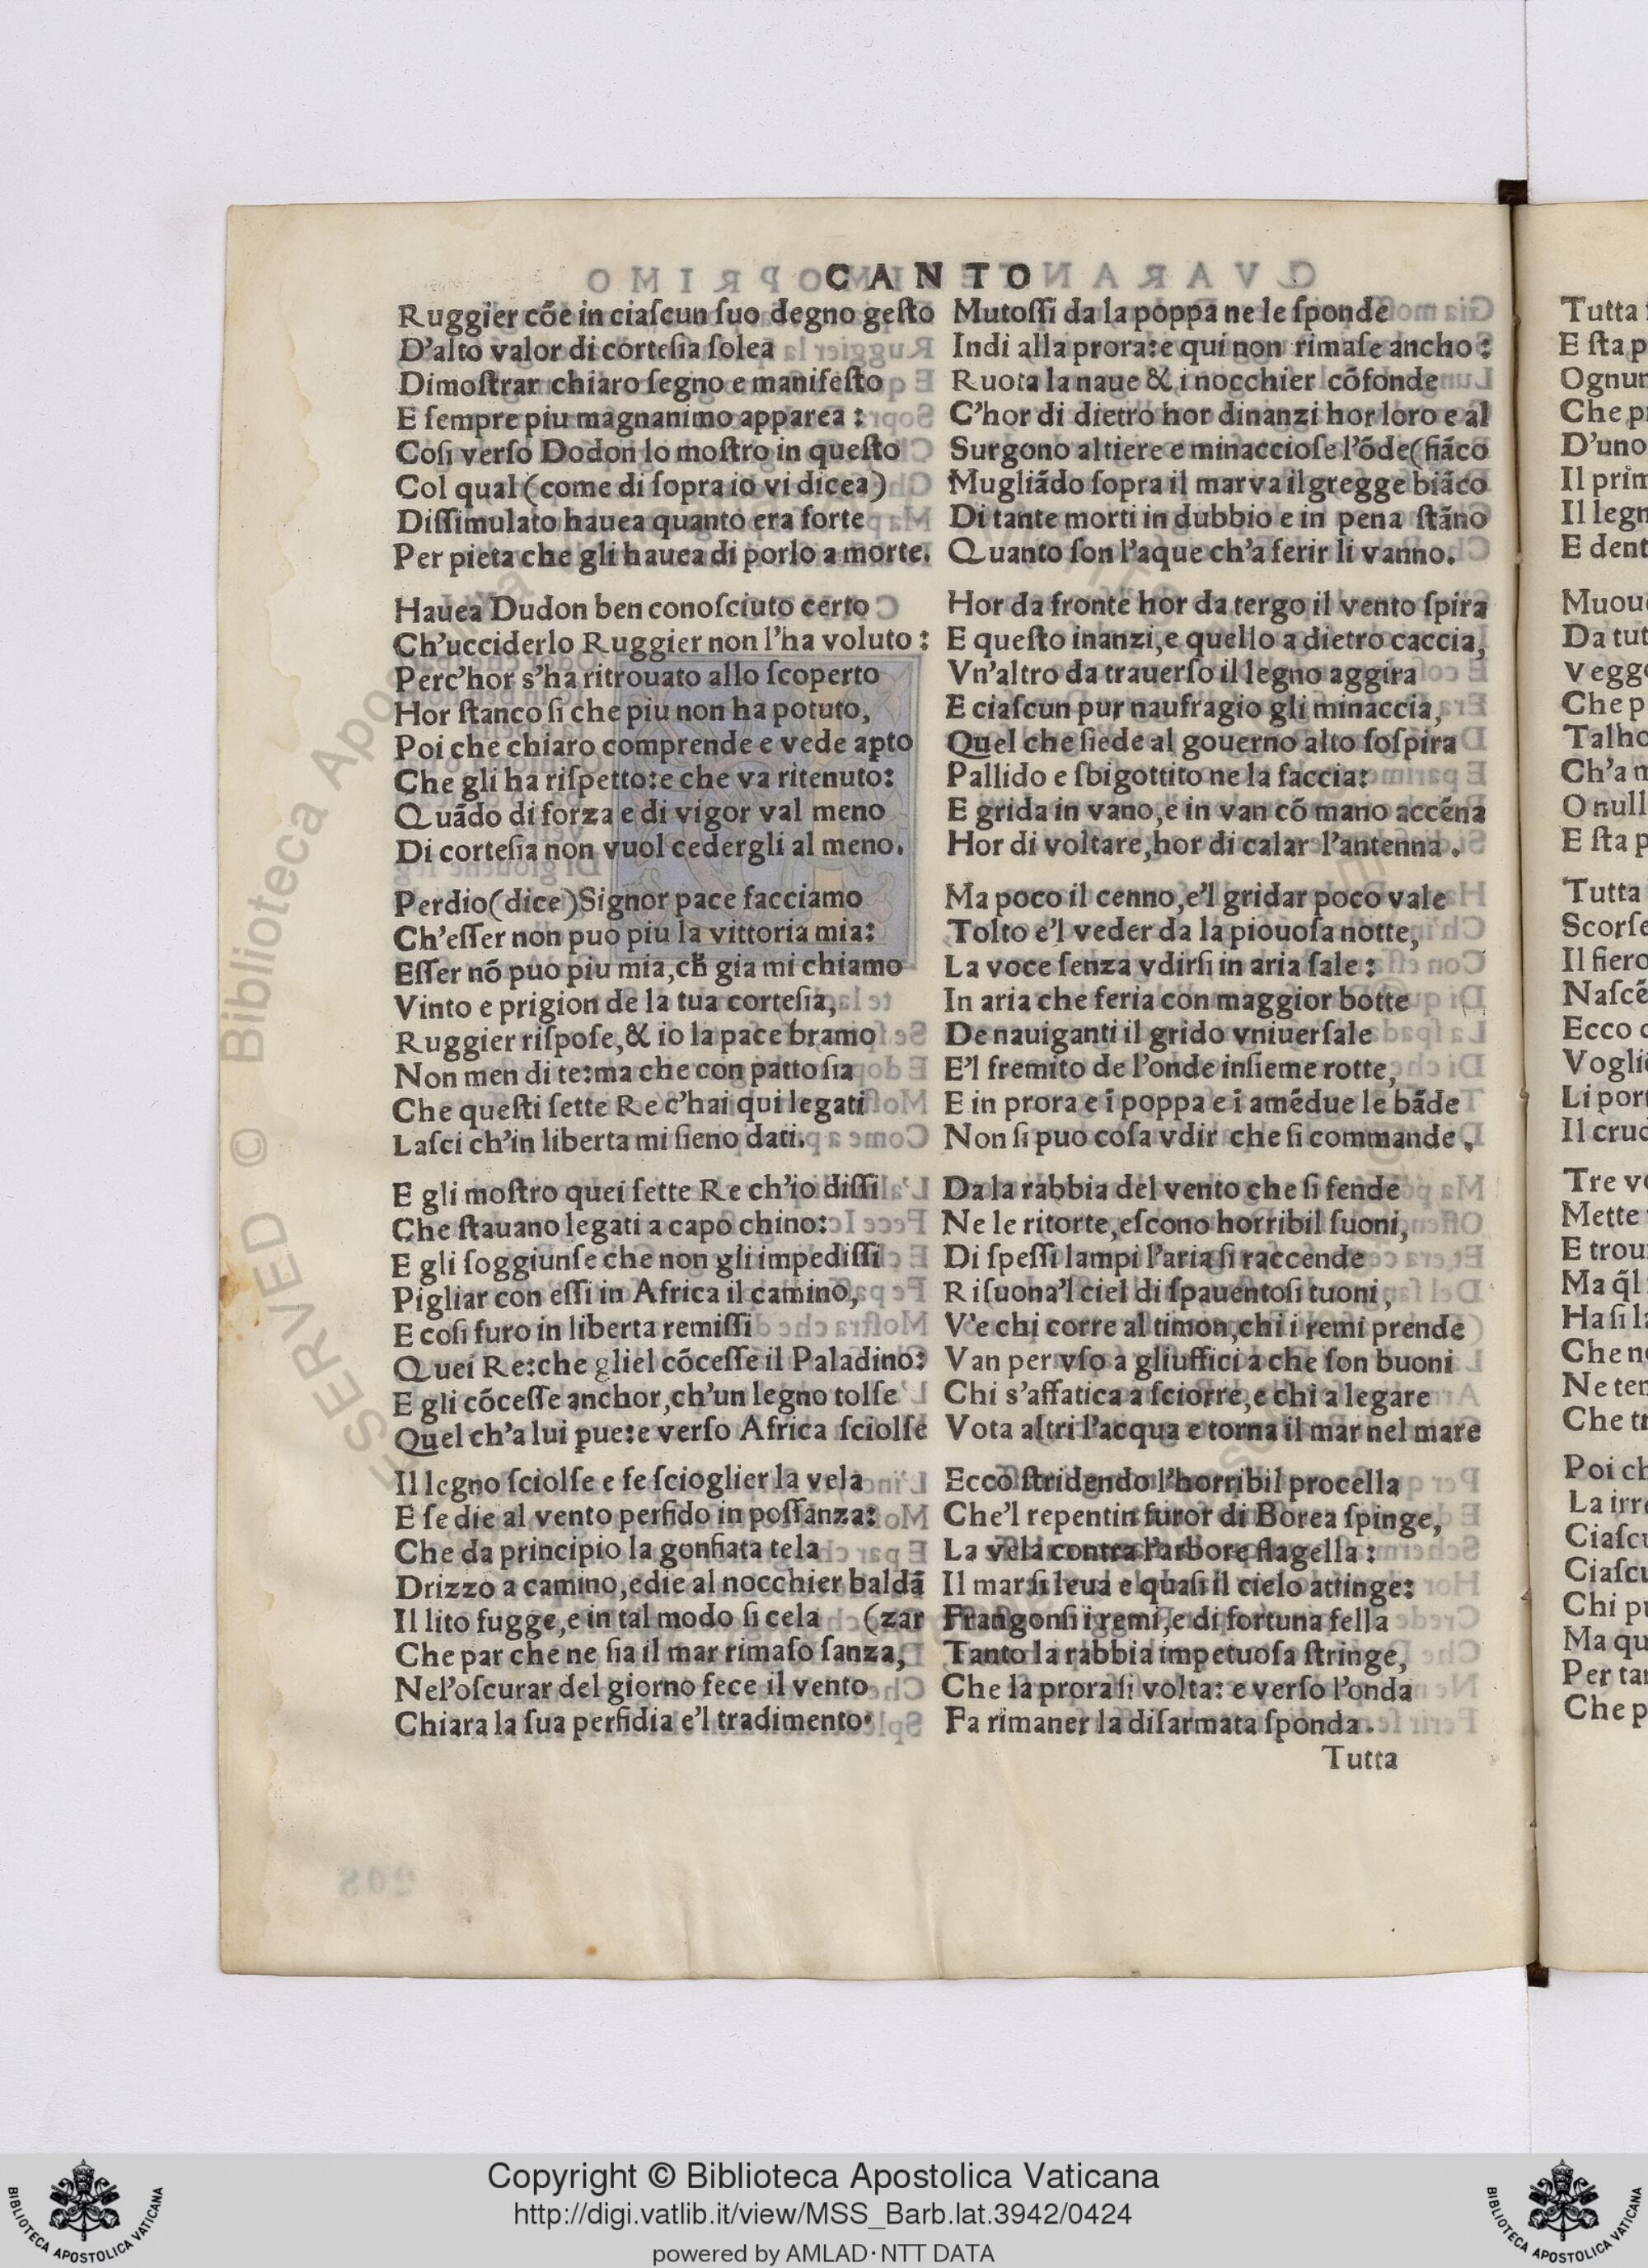 CANTO
Ruggier cõe in ciaſcun ſuo degno geſto
D'alto valor di corteſia ſolea
Dimoſtrar chiaro ſegno e manifeſto
E ſempre piu magnanimo apparea :
Coſi verſo Dodon lo moſtro in queſto
Col qual (come di ſopra io vi dicea)
Diſſimulato hauea quanto era forte
Per pieta che gli hauea di porlo a morte.
Hauea Dudon ben conoſciuto certo
Ch'ucciderlo Ruggier non l'ha voluto :
Perc'hor s'ha ritrouato allo ſcoperto
Hor ſtanco ſi che piu non ha potuto,
Poi che chiaro comprende e vede apto
Che gli ha riſpetto:e che va ritenuto:
Quãdo di forza e di vigor val meno
Di corteſia non vuol cedergli al meno.
Perdio(dice)Signor pace facciamo
Ch'eſſer non puo piu la vittoria mia:
Eſſer nõ puo piu mia,ch̃ gia mi chiamo
Vinto e prigion de la tua corteſia,
Ruggier riſpoſe,& io la pace bramo
Non men di te:ma che con patto ſia
Che queſti ſette Re c'hai qui legati
Laſci ch'in liberta mi ſieno dati.
E gli moſtro quei ſette Re ch'io diſſi
Che ſtauano legati a capo chino:
E gli ſoggiunſe che non gli impediſſi
Pigliar con eſſi in Africa il camino,
E coſi furo in liberta remiſſi
Quei Re:che gliel cõceſſe il Paladino:
E gli cõceſſe anchor,ch'un legno tolſe
Quel ch'a lui pue:e verſo Africa ſciolſe
Il legno ſciolſe e fe ſcioglier la vela
E ſe die al vento perfido in poſſanza:
Che da principio la gonfiata tela
Drizzo a camino,e die al nocchier baldã
Il lito fugge,e in tal modo ſi cela (zar
Che par che ne ſia il mar rimaſo ſanza,
Nel'oſcurar del giorno fece il vento
Chiara la ſua perfidia e'l tradimento.
Mutoſſi da la poppa ne le ſponde
Indi alla prora:e qui non rimaſe ancho :
Ruota la naue & i nocchier cõfonde
C'hor di dietro hor dinanzi hor loro e al
Surgono altiere e minaccioſe l'õde(fiãco
Mugliãdo ſopra il mar va il gregge biãco
Di tante morti in dubbio e in pena ſtãno
Quanto ſon l'aque ch'a ferir li vanno.
Hor da fronte hor da tergo il vento ſpira
E queſto inanzi,e quello a dietro caccia,
Vn'altro da trauerſo il legno aggira
E ciaſcun pur naufragio gli minaccia,
Quel che ſiede al gouerno alto ſoſpira
Pallido e ſbigottito ne la faccia:
E grida in vano,e in van cõ mano accẽna
Hor di voltare,hor di calar l'antenna .
Ma poco il cenno,e'l gridar poco vale
Tolto e'l veder da la piouoſa notte,
La voce ſenza vdirſi in aria ſale :
In aria che feria con maggior botte
De nauiganti il grido vniuerſale
E'l fremito de l'onde inſieme rotte,
E in prora e ĩ poppa e ĩ amẽdue le bãde
Non ſi puo coſa vdir che ſi commande .
Da la rabbia del vento che ſi fende
Ne le ritorte,eſcono horribil ſuoni,
Di ſpeſſi lampi l'aria ſi raccende
Riſuona'l ciel di ſpauentoſi tuoni,
V'e chi corre al timon,chi i remi prende
Van per vſo a gliuffici a che ſon buoni
Chi s'affatica a ſciorre,e chi a legare
Vota altri l'acqua e torna il mar nel mare
Ecco ſtridendo l'horribil procella
Che'l repentin furor di Borea ſpinge,
La vela contra l'arbore flagella :
Il mar ſi leua e quaſi il cielo attinge:
Frangonſi i remi,e di fortuna fella
Tanto la rabbia impetuoſa ſtringe,
Che la prora ſi volta: e verſo l'onda
Fa rimaner la diſarmata ſponda .
Tutta
Tutta
E ſta p
Ognun
Che p
D'uno
Il prim
Il legn
E dent
Muou
Da tut
Vegg
Che p
Talho
Ch'a
O null
E ſta p
Tutta
Scorſe
Il fiero
Naſcẽ
Ecco
Vogli
Li por
Il cruc
Tre v
Mette
E trou
Ma q̃l
Ha ſi l
Che n
Ne ter
Che tr
Poi ch
La irr
Ciaſcu
Ciaſcu
Chi p
Ma qu
Per tan
Che p
Copyright © Biblioteca Apostolica Vaticana
http://digi.vatlib.it/view/MSS_Barb.lat.3942/0424
powered by AMLAD·NTT DATA
BIBLIOTECA APOSTOLICA VATICANA
BIBLIOTECA APOSTOLICA VATICANA